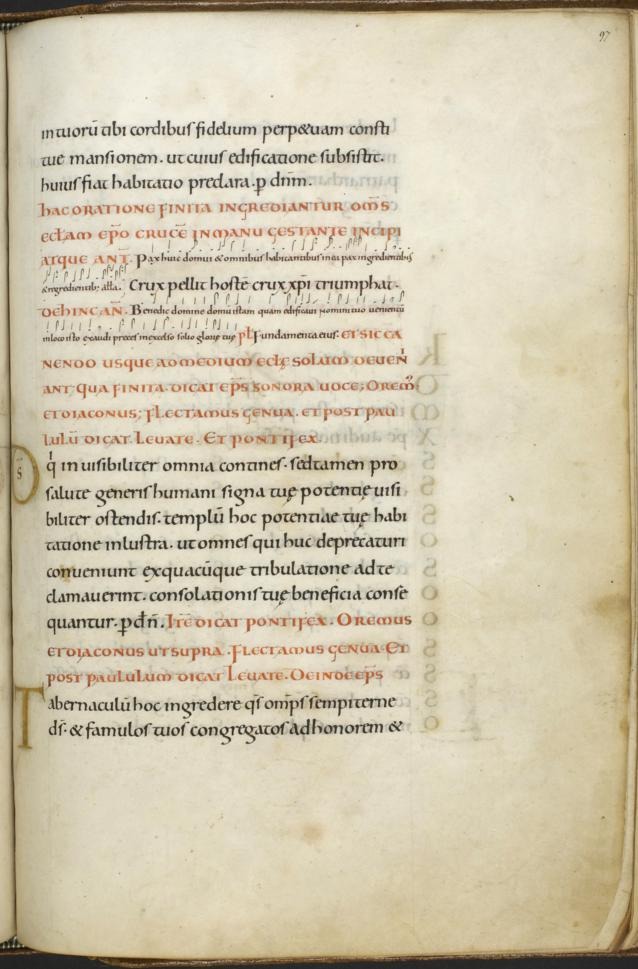 97
in tuorū tibi cordibus fidelium perp&uam consti
tue mansionem. ut cuius edificatione subsistit.
huius fiat habitatio preclara. p dnm.
HAC ORATIONE FINITA INGREDIANTUR OMS
ECLAM EPO CRUCE IN MANU GESTANTE INCIPI
ATQUE ANT. Pax huic domui & omnibus habitantibus in ea pax ingredientibus
& egredientib; alla. Crux pellit hostē crux xpi triumphat.
DEHINC AN. Benedic domine domū istam quam edificaui nomini tuo uenientiū
in loco isto exaudi preces in excelso solio glorię tuę ps Fundamenta eius. ET SIC CA
NENDO USQUE AD MEDIUM ECLĘ SOLUM DEUEN̄
ANT QUA FINITA. DICAT EPS SONORA UOCE; OREM̄;
ET DIACONUS; FLECTAMUS GENUA. ET POST PAU
LULŪ DICAT. LEUATE. ET PONTIFEX.
DS q̄ inuisibiliter omnia contines. sed tamen pro
salute generis humani signa tuę potentię uisi
biliter ostendis. templū hoc potentiae tuę habi
tatione inlustra. ut omnes qui huc deprecaturi
conueniunt ex quacūque tribulatione ad te
clamauerint. consolationis tuę beneficia conse
quantur. p dn̄. ITĒ DICAT PONTIFEX. OREMUS
ET DIACONUS UT SUPRA. FLECTAMUS GENUA. ET
POST PAULULUM DICAT LEUATE. DEINDE EPS
Tabernaculū hoc ingredere qs omps sempiterne
ds. & famulos tuos congregatos ad honorem &